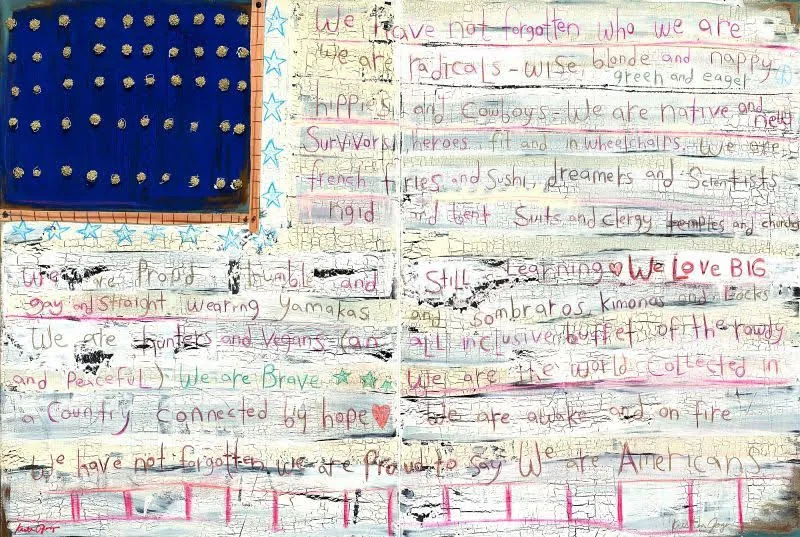 We have not forgotten who we are
we are radicals - wise, blonde and nappy
green and eager
hippies, and Cowboys - We are native and nelly
Survivors, heroes, fit and in wheelchairs. We are
french fries and Sushi, dreamers and Scientists
rigid and bent Suits and clergy temples and churches
We are Proud humble and Still Learning We Love BIG
gay and Straight wearing Yamakas and Sombraros, Kimonos and Locks
We are hunters and Vegans (an all inclusive buffet of the rowdy
and Peaceful) We are Brave We are the world collected in
a Country connected by hope We are awake and on fire
We have not forgotten we are Proud to say We are Americans